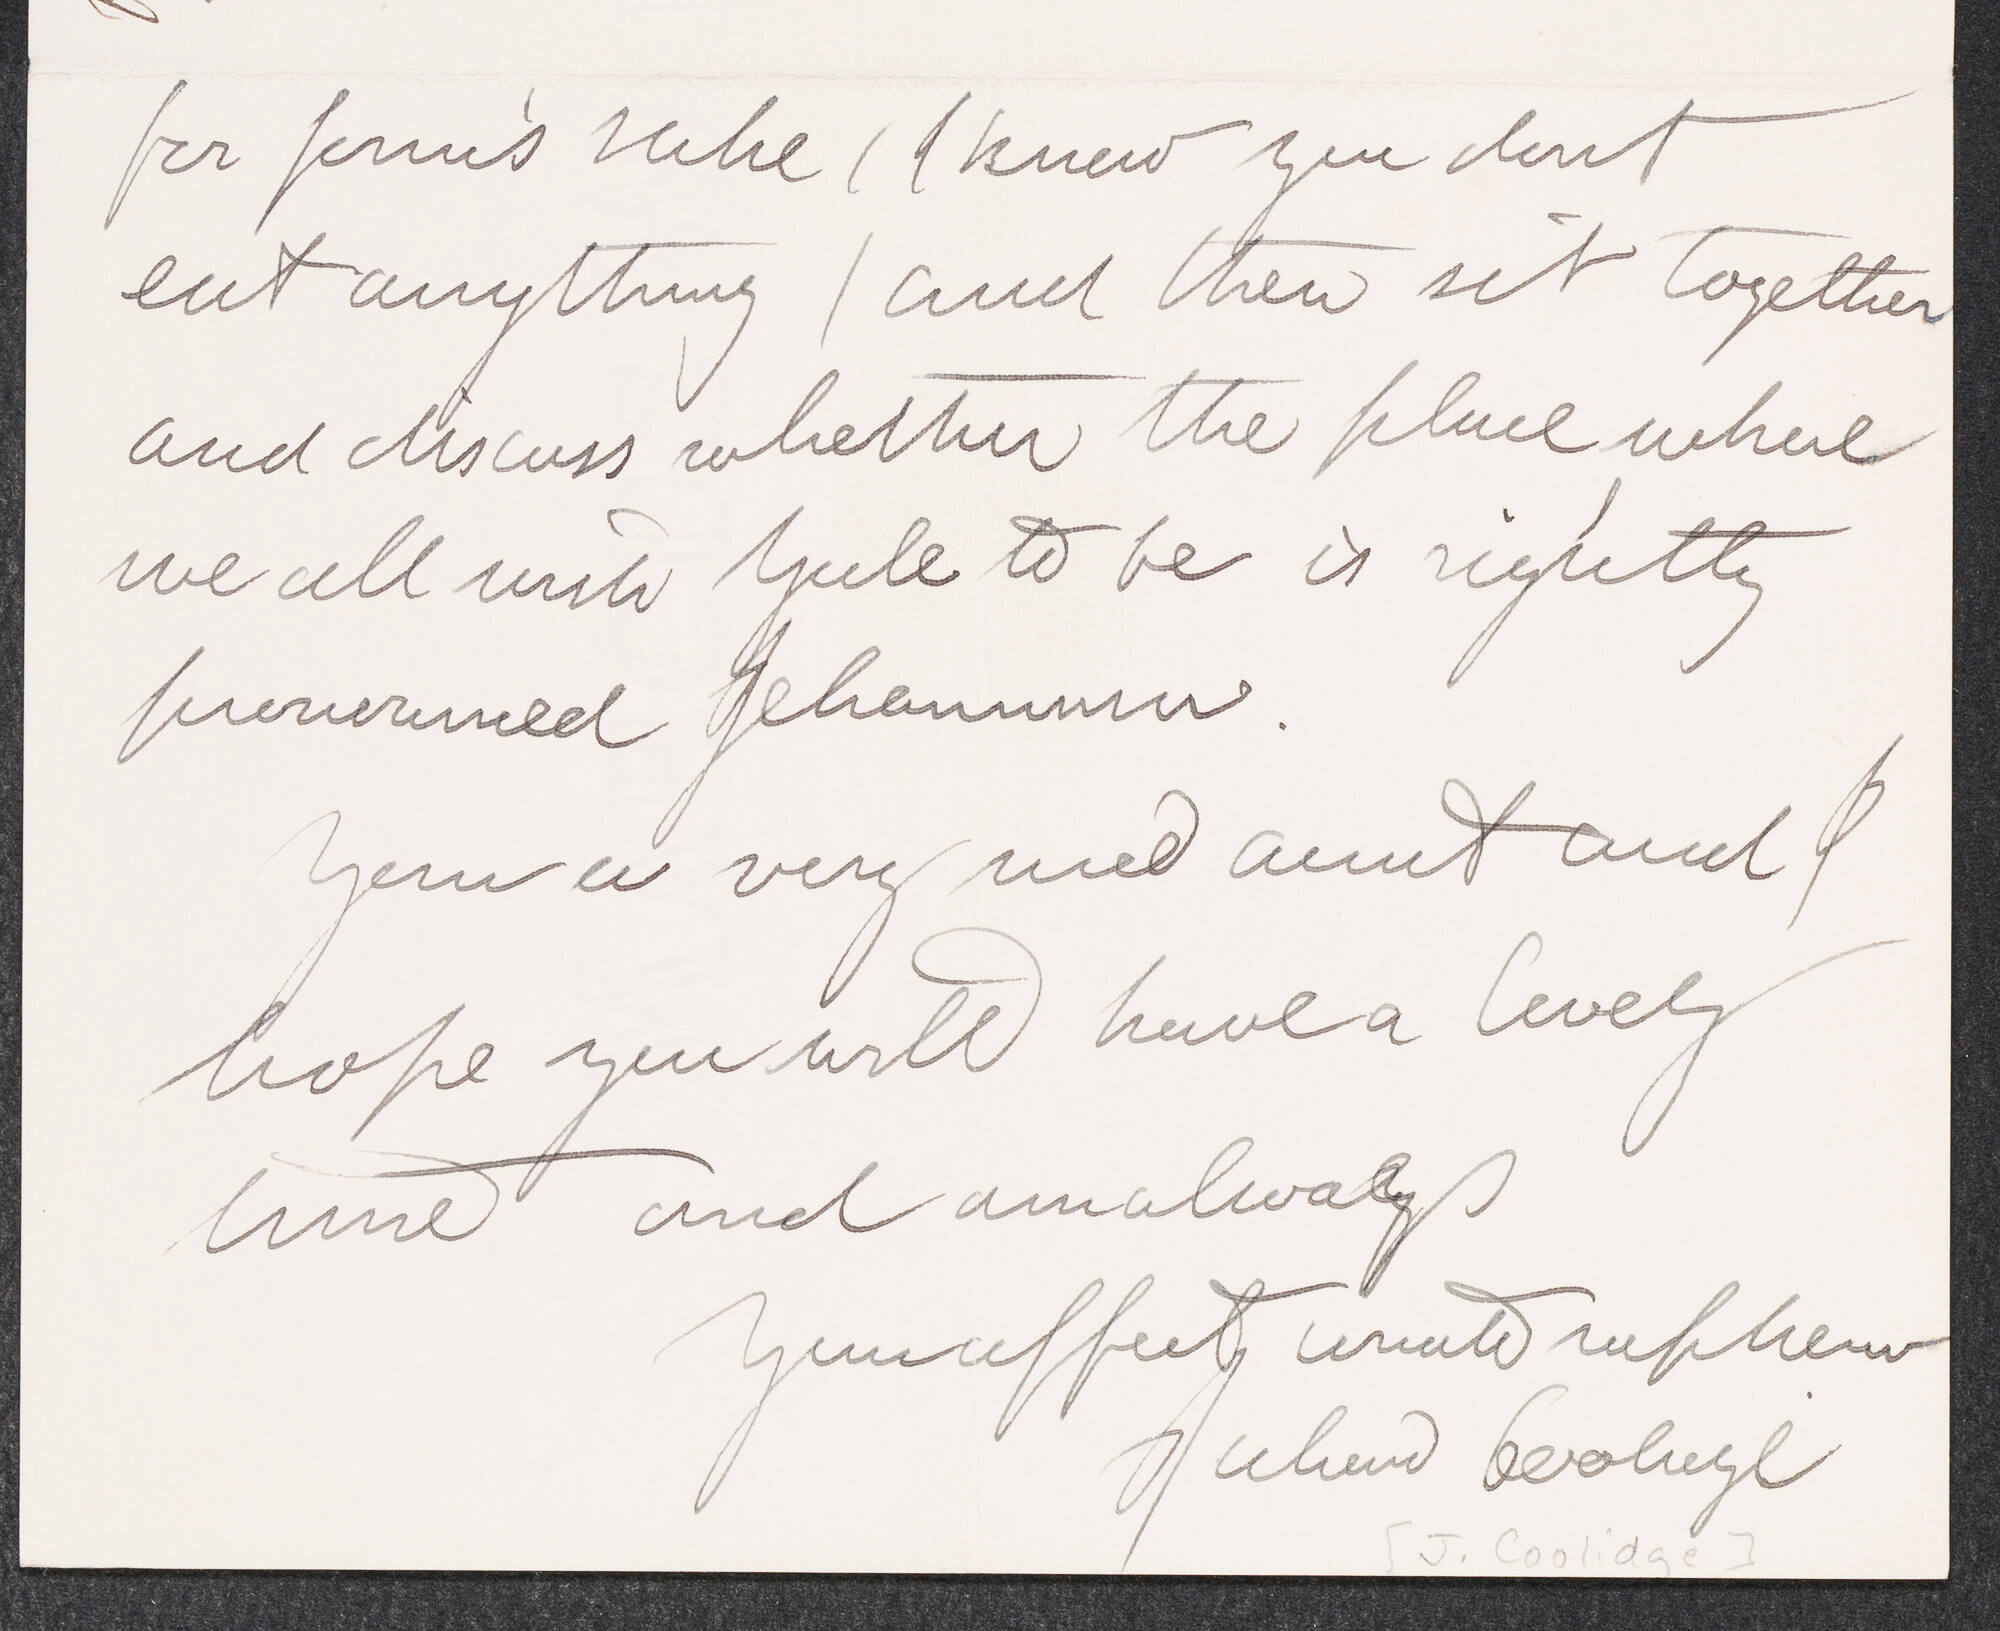 for form's sake, (I know you dont
eat anything) and then sit together
and discuss whether the place where
we all wish Yale to be is rightly
pronounced Jehannum.
You're a very nice aunt and I
hope you will have a lovely
time and am always
Your affect nephew
Coolidge
[J. Coolidge]